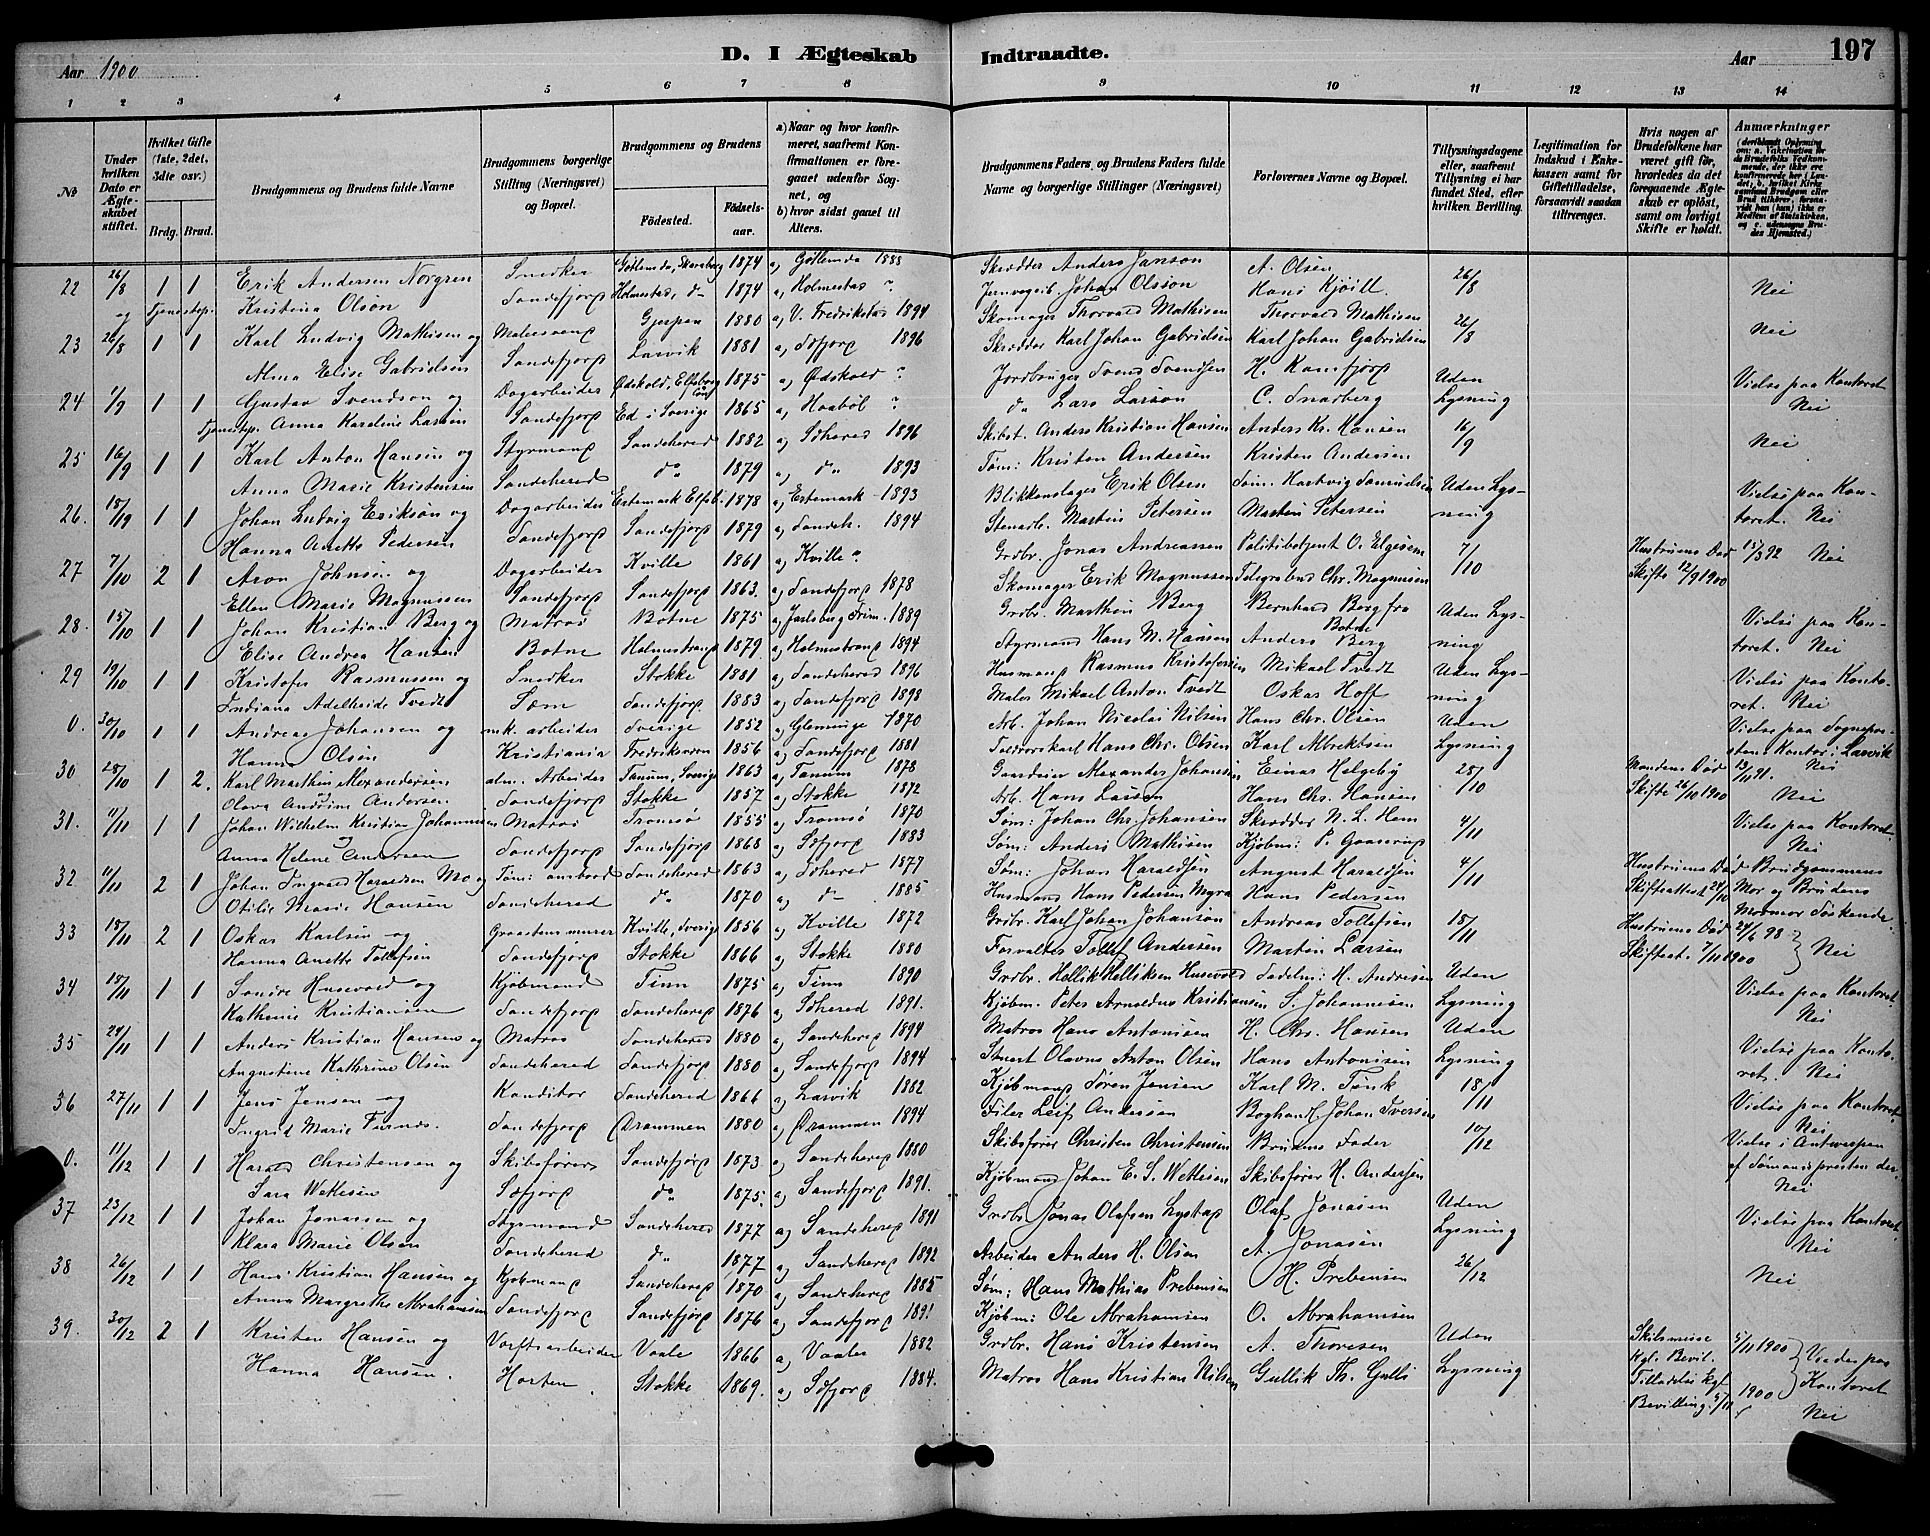 Aar 1900
D. I Ægteskab Indtraadte.
Aar
197
1 2 3 4 5 6 7 8 9 10 11 12 13 14
No
Under hvilken Dato er Ægteskabet stiftet.
Hvilket Gifte (1ste, 2det, 3die osv.)
Brdg. Brud.
Brudgommens og Brudens fulde Navne
Brudgommens borgerlige Stilling (Næringsvei) og Bopæl.
Brudgommens og Brudens
Födested.
Födselsaar.
a) Naar og hvor konfirmeret, saafremt Konfirmationen er foregaaet udenfor Sognet, og
b) hvor sidst gaaet til Alters.
Brudgommens Faders, og Brudens Faders fulde Navne og borgerlige Stillinger (Næringsvei)
Forlovernes Navne og Bopæl.
Tillysningsdagene eller, saafremt Tillysning ei har fundet Sted, efter hvilken Bevilling.
Legitimation for Indskud i Enkekassen samt for Giftetilladelse, forsaavidt saadan tiltrænges.
Hvis nogen af Brudefolkene har været gift för, hvorledes da det foregaaende Ægteskab er oplöst, samt om lovligt Skifte er holdt.
Anmærkninger
22 26/8 1 1 Erik Andersen Norgren Snedker 1874 a) Götlemda 1888 Skrædder Anders Janson A. Olsen 26/8 Nei
og Tjenestep. Kristina Olson Sandefjord Holmestad, do 1874 a) Holmestad ? Jernvegeib. Johan Olsson Hans Kjöill
23 26/8 1 1 Karl Ludvig Mathisen og Malersvend Gjerpen 1880 a) V. Fredrikstad 1894 Skomager Thorvald Mathisen Thorvald Mathisen 26/8 Nei
Alma Elise Gabrielsen Sandefjord Larvik 1881 a) Sdfjord 1896 Skrædder Karl Johan Gabrielsen Karl Johan Gabrielsen
24 1/9 1 1 Gustav Svendson og Dagarbeider Ödskold, Elfsborg 1875 a) Ödskold ? Jordbruger Svend Svendsen H. Ramfjord Uden Vielse paa Kontoret
Tjenestep. Anna Karoline Larsen Sandefjord Ed i Sverige 1865 a) Haaböl ? do Lars Larson C. Snarberg Lysning Nei
25 16/9 1 1 Karl Anton Hansen og Styrmand Sandeherred 1882 a) Sdherred 1896 Skibst. Anders Kristian Hansen Anders Kr. Hansen 16/9 Nei
Anna Marie Kristensen Sandeherred do 1879 a) do 1893 Töm: Kristen Andersen Kristen Andersen
26. 18/9 1 1 Johan Ludvig Erikson og Dagarbeider Ertemark Elfsb. 1878 a) Ertemark 1893 Blikkenslager Erik Olsen Töm. Hartvig Samuelsen Uden Lys- Vielse paa Kon-
Hanna Anette Pedersen Sandefjord Sandefjord 1879 a) Sandeh. 1894 Stenarb. Martin Petersen Martin Petersen ning toret. Nei
27 7/10 2 1 Aron Johnsen og Dagarbeider Kville 1861 a) Kville Grdbr. Jonas Andreassen Politibetjent O. Elgesem 7/10 Hustruens Död 15/3 92 Nei
Ellen Marie Magnussen Sandefjord Sandefjord 1863. a) Sandefjord 1878 Skomager Erik Magnussen Telegrafbud Chr. Magnusen Skifte 12/9 1900
28. 15/10 1 1 Johan Kristian Berg og Matros Botne 1875 a) Jarlsberg Frim. 1889 Grdbr. Marthin Berg Bernhard Berg fra Botne Uden Lys- Vielse paa Kon-
Elise Andrea Hansen Botne Holmestrand 1879 a) Holmestrand 1894 Styrmand Hans M. Hansen Anders Berg ning toret. Nei
29 19/10 1 1 Kristofer Rasmussen og Snedker Stokke 1881 a) Sandeherred 1896 Husmand Rasmus Kristofersen Mikael Tvedt Uden Lys- Vielse paa Konto-
Indiana Adelheide Tvedt Sæm Sandefjord 1883 a) Sandefjord 1898 Maler Mikael Anton Tvedt Oskar Hoff ning ret. Nei
0. 30/10 1 1 Andreas Johansen og mk. arbeider Sverige 1852 a) Glemminge 1870 Arb. Johan Nicolai Nilsen Hans Chr. Olsen Uden Vielse paa Sognepre-
Hanna Olsen Kristiania Fredriksværn 1856 a) Sandefjord 1881 Hans Chr. Olsen Karl Albrektsen Lysning stens Kontor i Larvik
30 28/10 1 2. Karl Marthin Alexandersen alm. Arbeider Tanum, Sverige 1863 a) Tanum 1878 Gaardeier Alexander Johansen Einar Helgeby 28/10 Mandens Död 13/11 91. Nei
Olava Andrine Andersen Sandefjord Stokke 1857 a) Stokke 1872 Arb. Hans Larsen Hans Chr. Hansen Skifte 26/10 1900 Nei
31. 11/11 1 1 Johan Wilhelm Kristian Johannesen Matros Tromsö 1855 a) Tromsö 1870 Söm: Johan Chr. Johansen Skrædder N. L. Hem 4/11 Vielse paa Kontoret
Anna Helene Andersen Sandefjord Sandefjord 1868 a) Sdfjord 1883 Söm: Anders Mathisen Kjöbm: P. Gaaserud Nei
32 11/11 2 1 Johan Ingvard Haraldsen Mo og Töm: ombord Sandeherred 1863 a) Sdherred 1877 Söm: Johan Haraldsen August Haraldsen 4/11 Hustruens Död Brudgommens
Otilie Marie Hansen Sandeherred do 1870 a) do 1885 Husmand Hans Pedersen Myra Hans Pedersen Skifteattest 24/10 Mor og Brudens Mormor Söskende
33 18/11 2 1 Oskar Karlsen og Graastensmurer Kville, Sverige 1856 a) Kville 1872 Grdbr. Karl Johan Johanson Andreas Tollefsen 18/11 Hustruens Död 24/6 98
Hanna Anette Tollefsen Sandefjord Stokke 1866 a) Stokke 1880 Forvalter Tollef Andersen Martin Larsen Skifteat. 7/11 1900 Nei
34 18/11 1 1 Sondre Husevold og Kjöbmand Tinn 1875 a) Tinn 1890 Grdbr. Hellik Helliksen Husevold Sadelm: H. Andresen Uden Vielse paa Kontoret
Kathrine Kristiansen Sandefjord Sandeherred 1876 a) Sdherred 1891. Kjöbm. Peter Arnoldus Kristiansen S. Johannesen Lysning Nei
35 24/11 1 1 Anders Kristian Hansen og Matros Sandeherred 1880 a) Sandeherred 1894 Matros Hans Antonisen H. Chr. Hansen Uden Vielse paa Konto-
Augustine Kathrine Olsen Sandeherred Sandefjord 1880 a) Sandefjord 1894 Stuert Olavus Anton Olsen Hans Antonisen Lysning ret. Nei
36 27/11 1 1 Jens Jensen og Konditor Sandeherred 1866 a) Larvik 1882 Kjöbmand Sören Jensen Karl M. Tönk 18/11 Vielse paa Kontoret,
Ingrid Marie Furnes. Sandefjord Drammen 1880 a) Drammen 1894 Filer Leif Andersen Boghandl. Johan Iversen Nei
0. 11/12 1 1 Harald Christensen og Skibsförer Sandefjord 1873 a) Sandeherred 1880 Skibsförer Christen Christensen Brudens Fader 10/12 Vielse i Antwerpen
Sara Wettesen Sdfjord do 1875. a) Sandefjord 1891. Kjöbmand Johan E. S. Wettesen Skibsförer H. Andersen af Sömandspresten der. Nei
37 23/12 1 1 Johan Jonassen og Styrmand Sandeherred 1877 a) Sandeherred 1891 Grdbr. Jonas Olafsen Lystad Olaf Jonasen Uden Vielse paa Kontoret,
Klara Marie Olsen Sandeherred do 1877 a) Sandeherred 1892 Arbeider Anders H. Olsen A. Jonasen Lysning Nei
38 26/12 1 1 Hans Kristian Hansen og Kjöbmand Sandeherred 1870 a) Sandeherred 1885 Söm: Hans Mathias Prebensen H. Prebensen 26/12 Nei
Anna Margrethe Abrahamsen Sandefjord Sandefjord 1876 a) Sandefjord 1891 Kjöbm: Ole Abrahamsen O. Abrahamsen
39. 30/12 2 1 Kristen Hansen og Værftsarbeider Vaale 1866 a) Vaaler 1882 Grdbr. Hans Kristensen A. Thoresen Uden Skilsmisse 5/11 1900 Vielse paa
Hanna Hansen. Horten Stokke 1869. a) Sdfjord 1884. Matros Hans Kristian Nilsen Gullik Th. Gulli Lysning Kgl. Bevil. Tilladelse kgl. Bevilling 5/11 1900 Kontoret
Nei